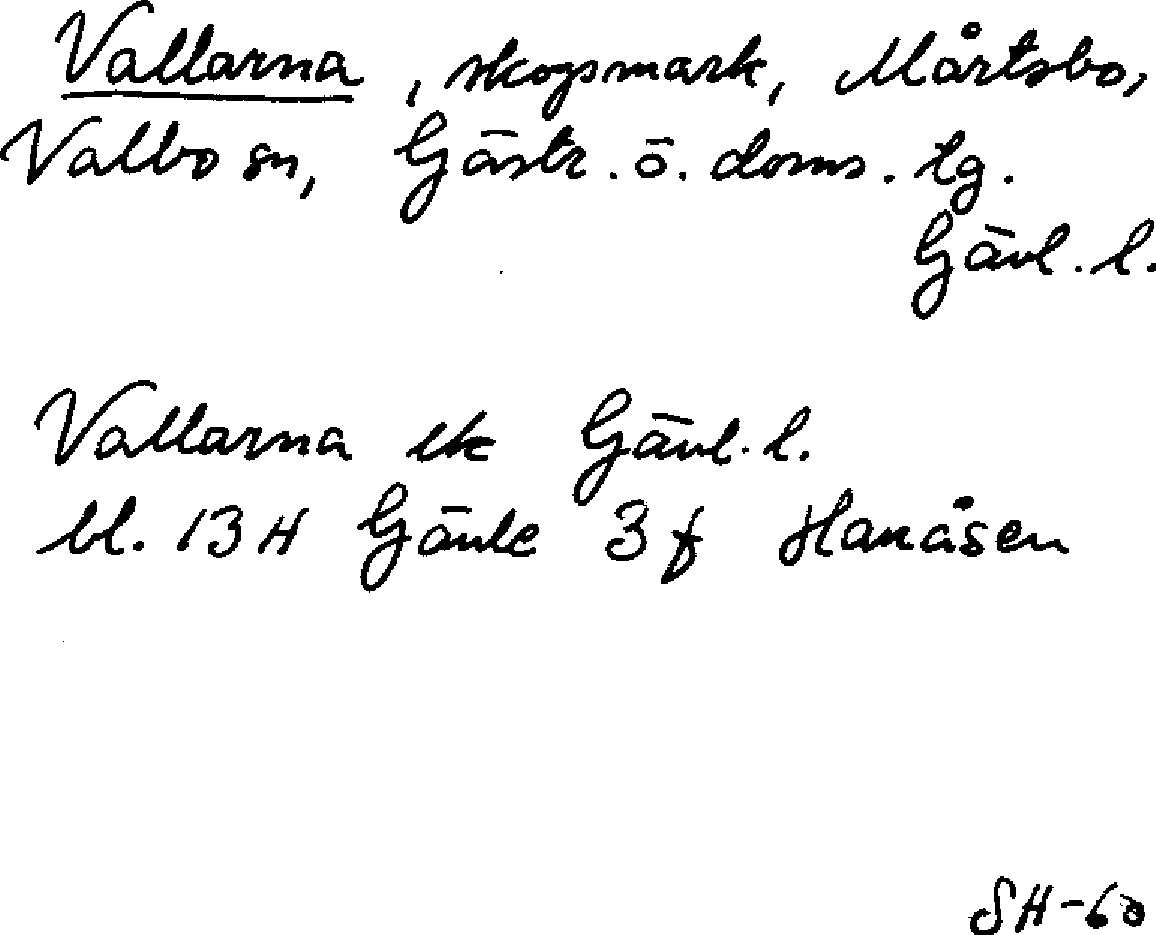 Vallarna, skogsmark, Mårtsbo,
Valbo sn, Gästr. ö. doms. tg.
Gävl. l.
Vallarna ek Gävl. l.
bl. 13 H Gävle 3 f Hanåsen
SH-60